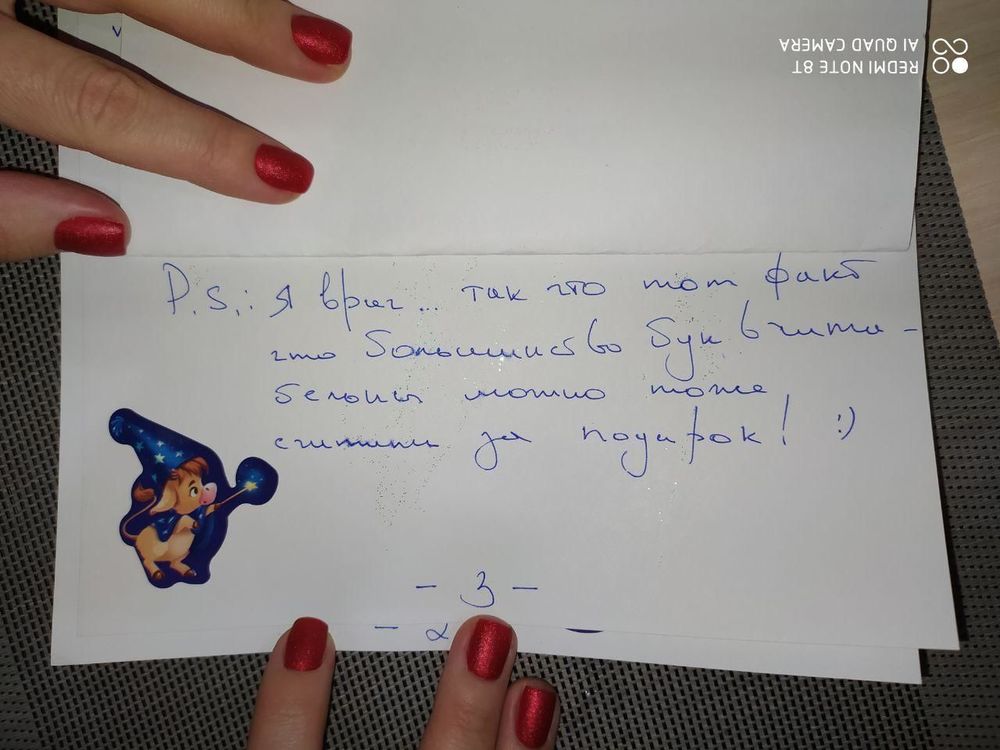 REDMI NOTE 8T
AI QUAD CAMERA
P.S.: Я врач... так что тот факт
что большинство букв чита-
бельны можно тоже
считать за подарок! :)
- 3 -